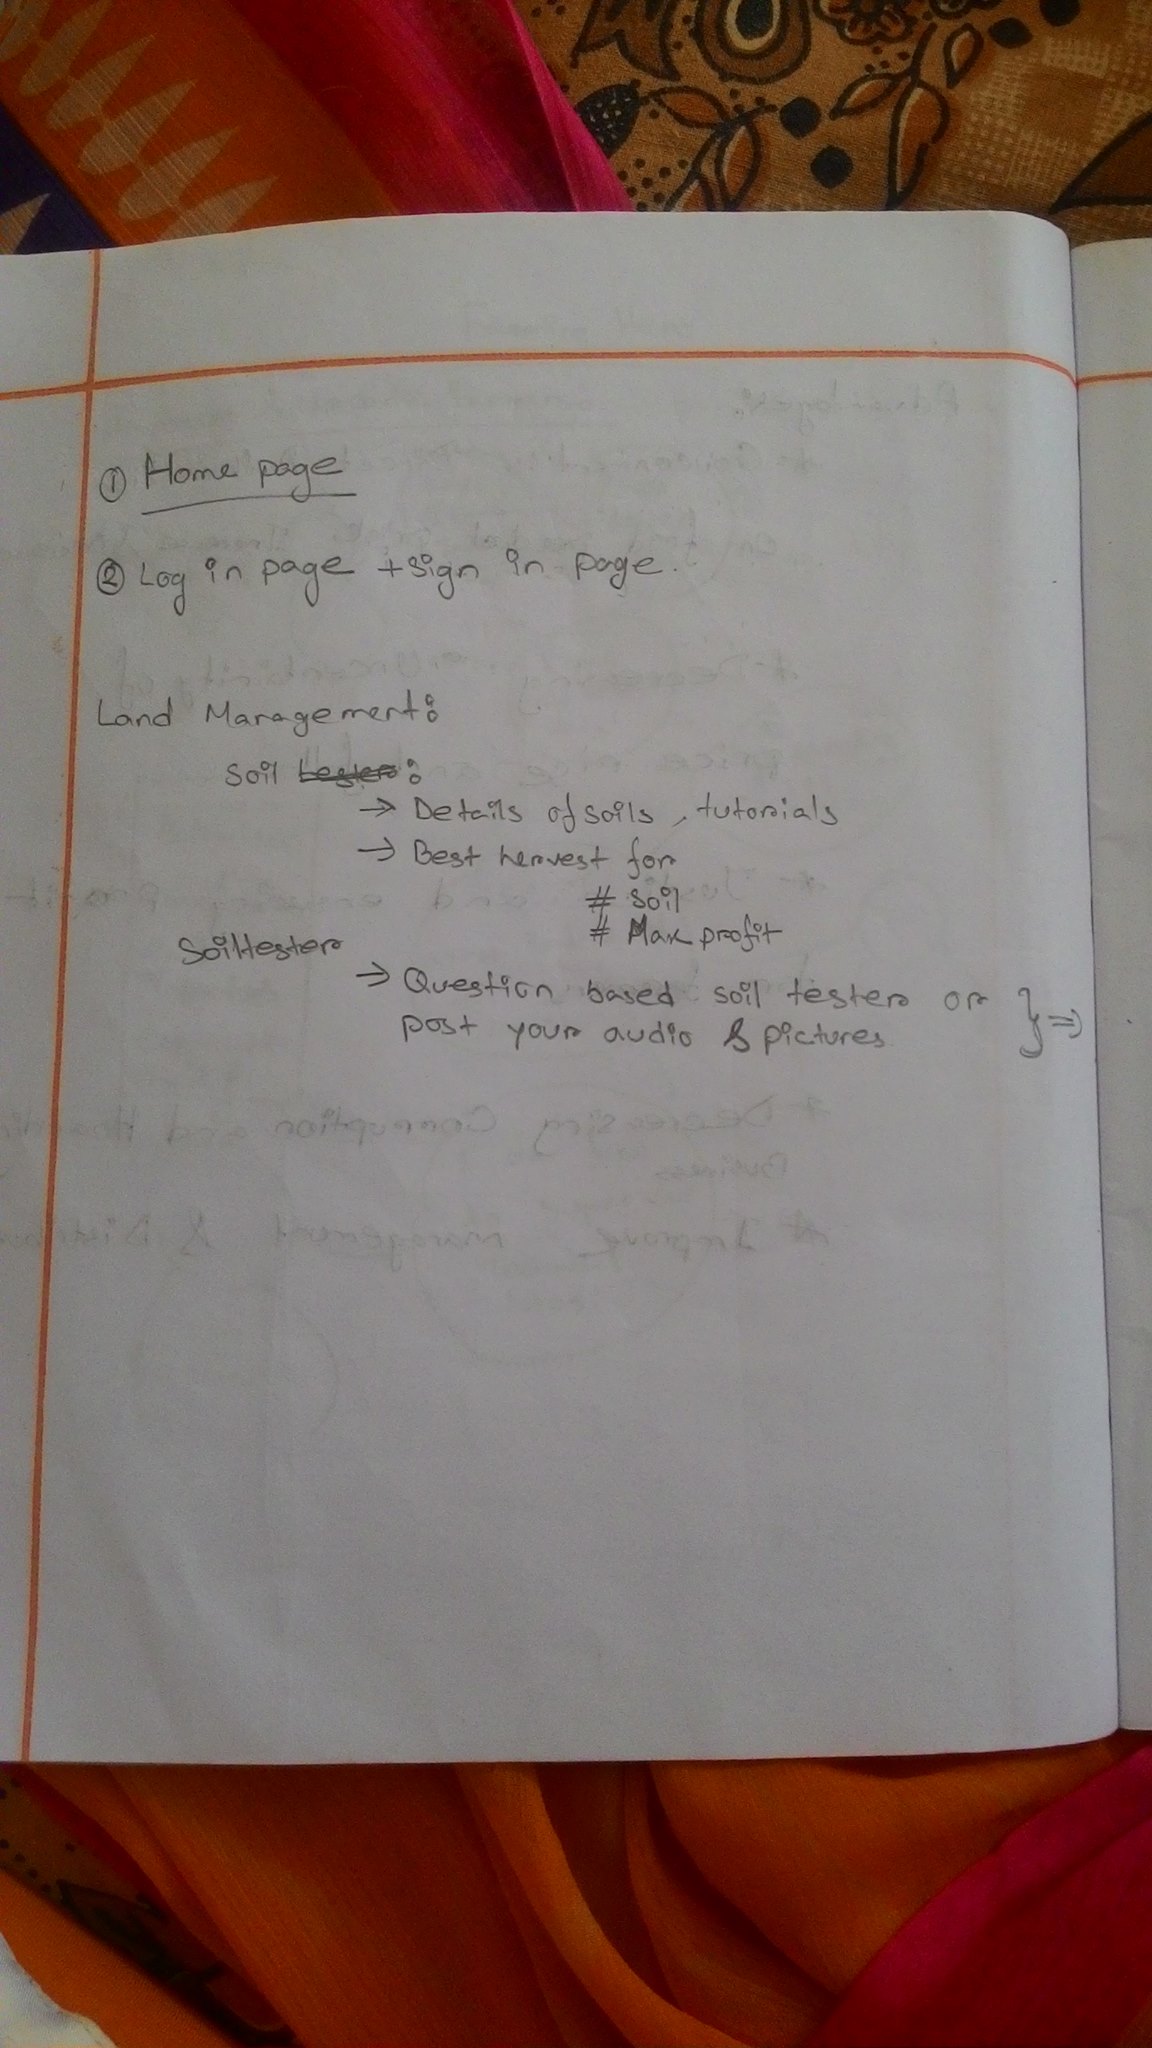 ① Home page
② Log in page + sign in page.
Land Management:
Soil tester:
→ Details of soils, tutorials
→ Best hervest for
# Soil
# Max profit
Soiltester
→ Question based soil tester or } ⇒
post your audio & pictures